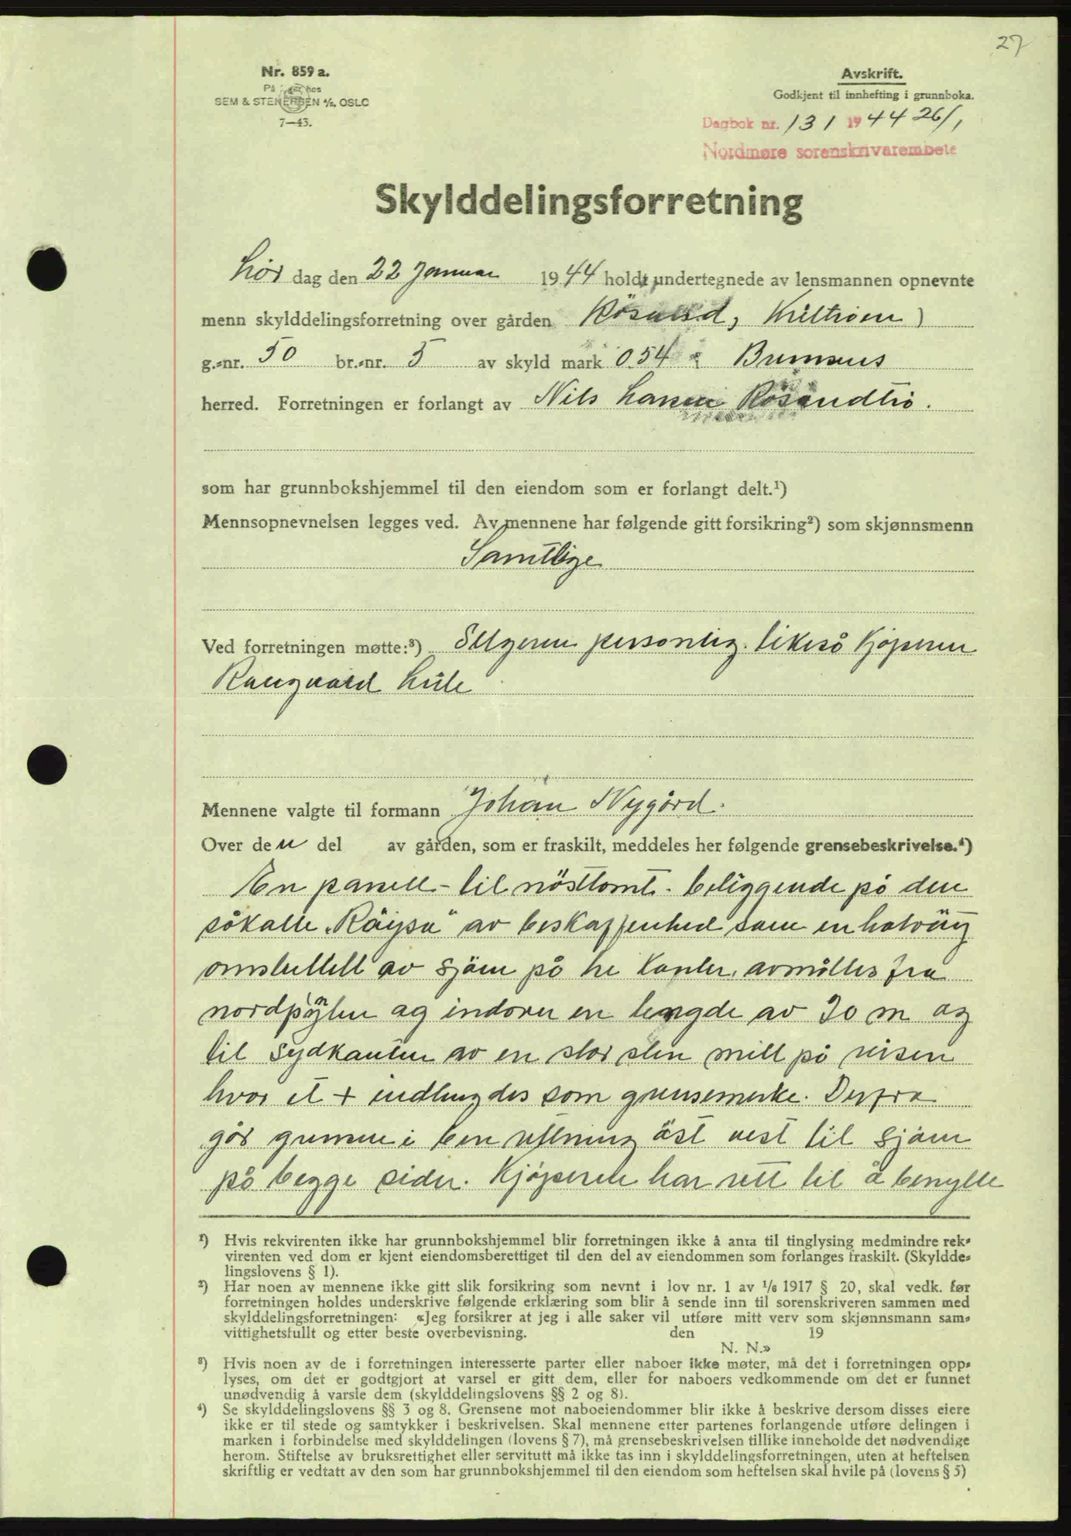 27
Nr. 859 a.
På lager hos
SEM & STENERSEN A/S, OSLO
7—43.
Avskrift.
Godkjent til innhefting i grunnboka.
Dagbok nr. 131 1944 26/1
Nordmøre sorenskrivarembete
Skylddelingsforretning
Lør dag den 22 Januar 1944 holdt undertegnede av lensmannen opnevnte
menn skylddelingsforretning over gården Røsand,
g.-nr. 50 br.-nr. 5 av skyld mark 0.54 i Bremsnes
herred. Forretningen er forlangt av Nils Larsen Røsandtrø.
som har grunnbokshjemmel til den eiendom som er forlangt delt.¹)
Mennsopnevnelsen legges ved. Av mennene har følgende gitt forsikring²) som skjønnsmenn
Samtlige
Ved forretningen møtte:³) Selgeren personlig. likeså Kjøperen
Rangvald
Mennene valgte til formann Johan Nygård.
Over den del av gården, som er fraskilt, meddeles her følgende grensebeskrivelse.⁴)
En parsell til nösttomt. beliggende på den
såkalte „Röysa" av beskaffenhed som en halvöy
omsluttett av sjöen på tre kanter. avmåltes fra
og indover en lengde av 20 m og
til sydkanten av en stor sten mitt på
hvor et + indhugdes som grensemerke. Derfra
går grensen i ben rettning öst vest til sjöen
på begge sider. Kjöperen har rett til å benytte
¹) Hvis rekvirenten ikke har grunnbokshjemmel blir forretningen ikke å anta til tinglysing medmindre rek-
virenten ved dom er kjent eiendomsberettiget til den del av eiendommen som forlanges fraskilt. (Skyldde-
lingslovens § 1).
²) Har noen av mennene ikke gitt slik forsikring som nevnt i lov nr. 1 av 1/6 1917 § 20, skal vedk. før
forretningen holdes underskrive følgende erklæring som blir å sende inn til sorenskriveren sammen med
skylddelingsforretningen: «Jeg forsikrer at jeg i alle saker vil utføre mitt verv som skjønnsmann sam-
vittighetsfullt og etter beste overbevisning. den 19
N. N.»
³) Hvis noen av de i forretningen interesserte parter eller naboer ikke møter, må det i forretningen opp-
lyses, om det er godtgjort at varsel er gitt dem, eller for naboers vedkommende om det er funnet
unødvendig å varsle dem (skylddelingslovens §§ 2 og 8).
⁴) Se skylddelingslovens §§ 3 og 8. Grensene mot naboeiendommer blir ikke å beskrive dersom disses eiere
ikke er til stede og samtykker i beskrivelsen. Skal mennene etter partenes forlangende utføre delingen i
marken i forbindelse med skylddelingen (lovens § 7), må grensebeskrivelsen tillike inneholde det nødvendige
herom. Stiftelse av bruksrettighet eller servitutt må ikke tas inn i skylddelingsforretningen, uten at heftelsen
skriftlig er vedtatt av den som har grunnbokshjemmel til den eiendom som heftelsen skal hvile på (lovens § 5)